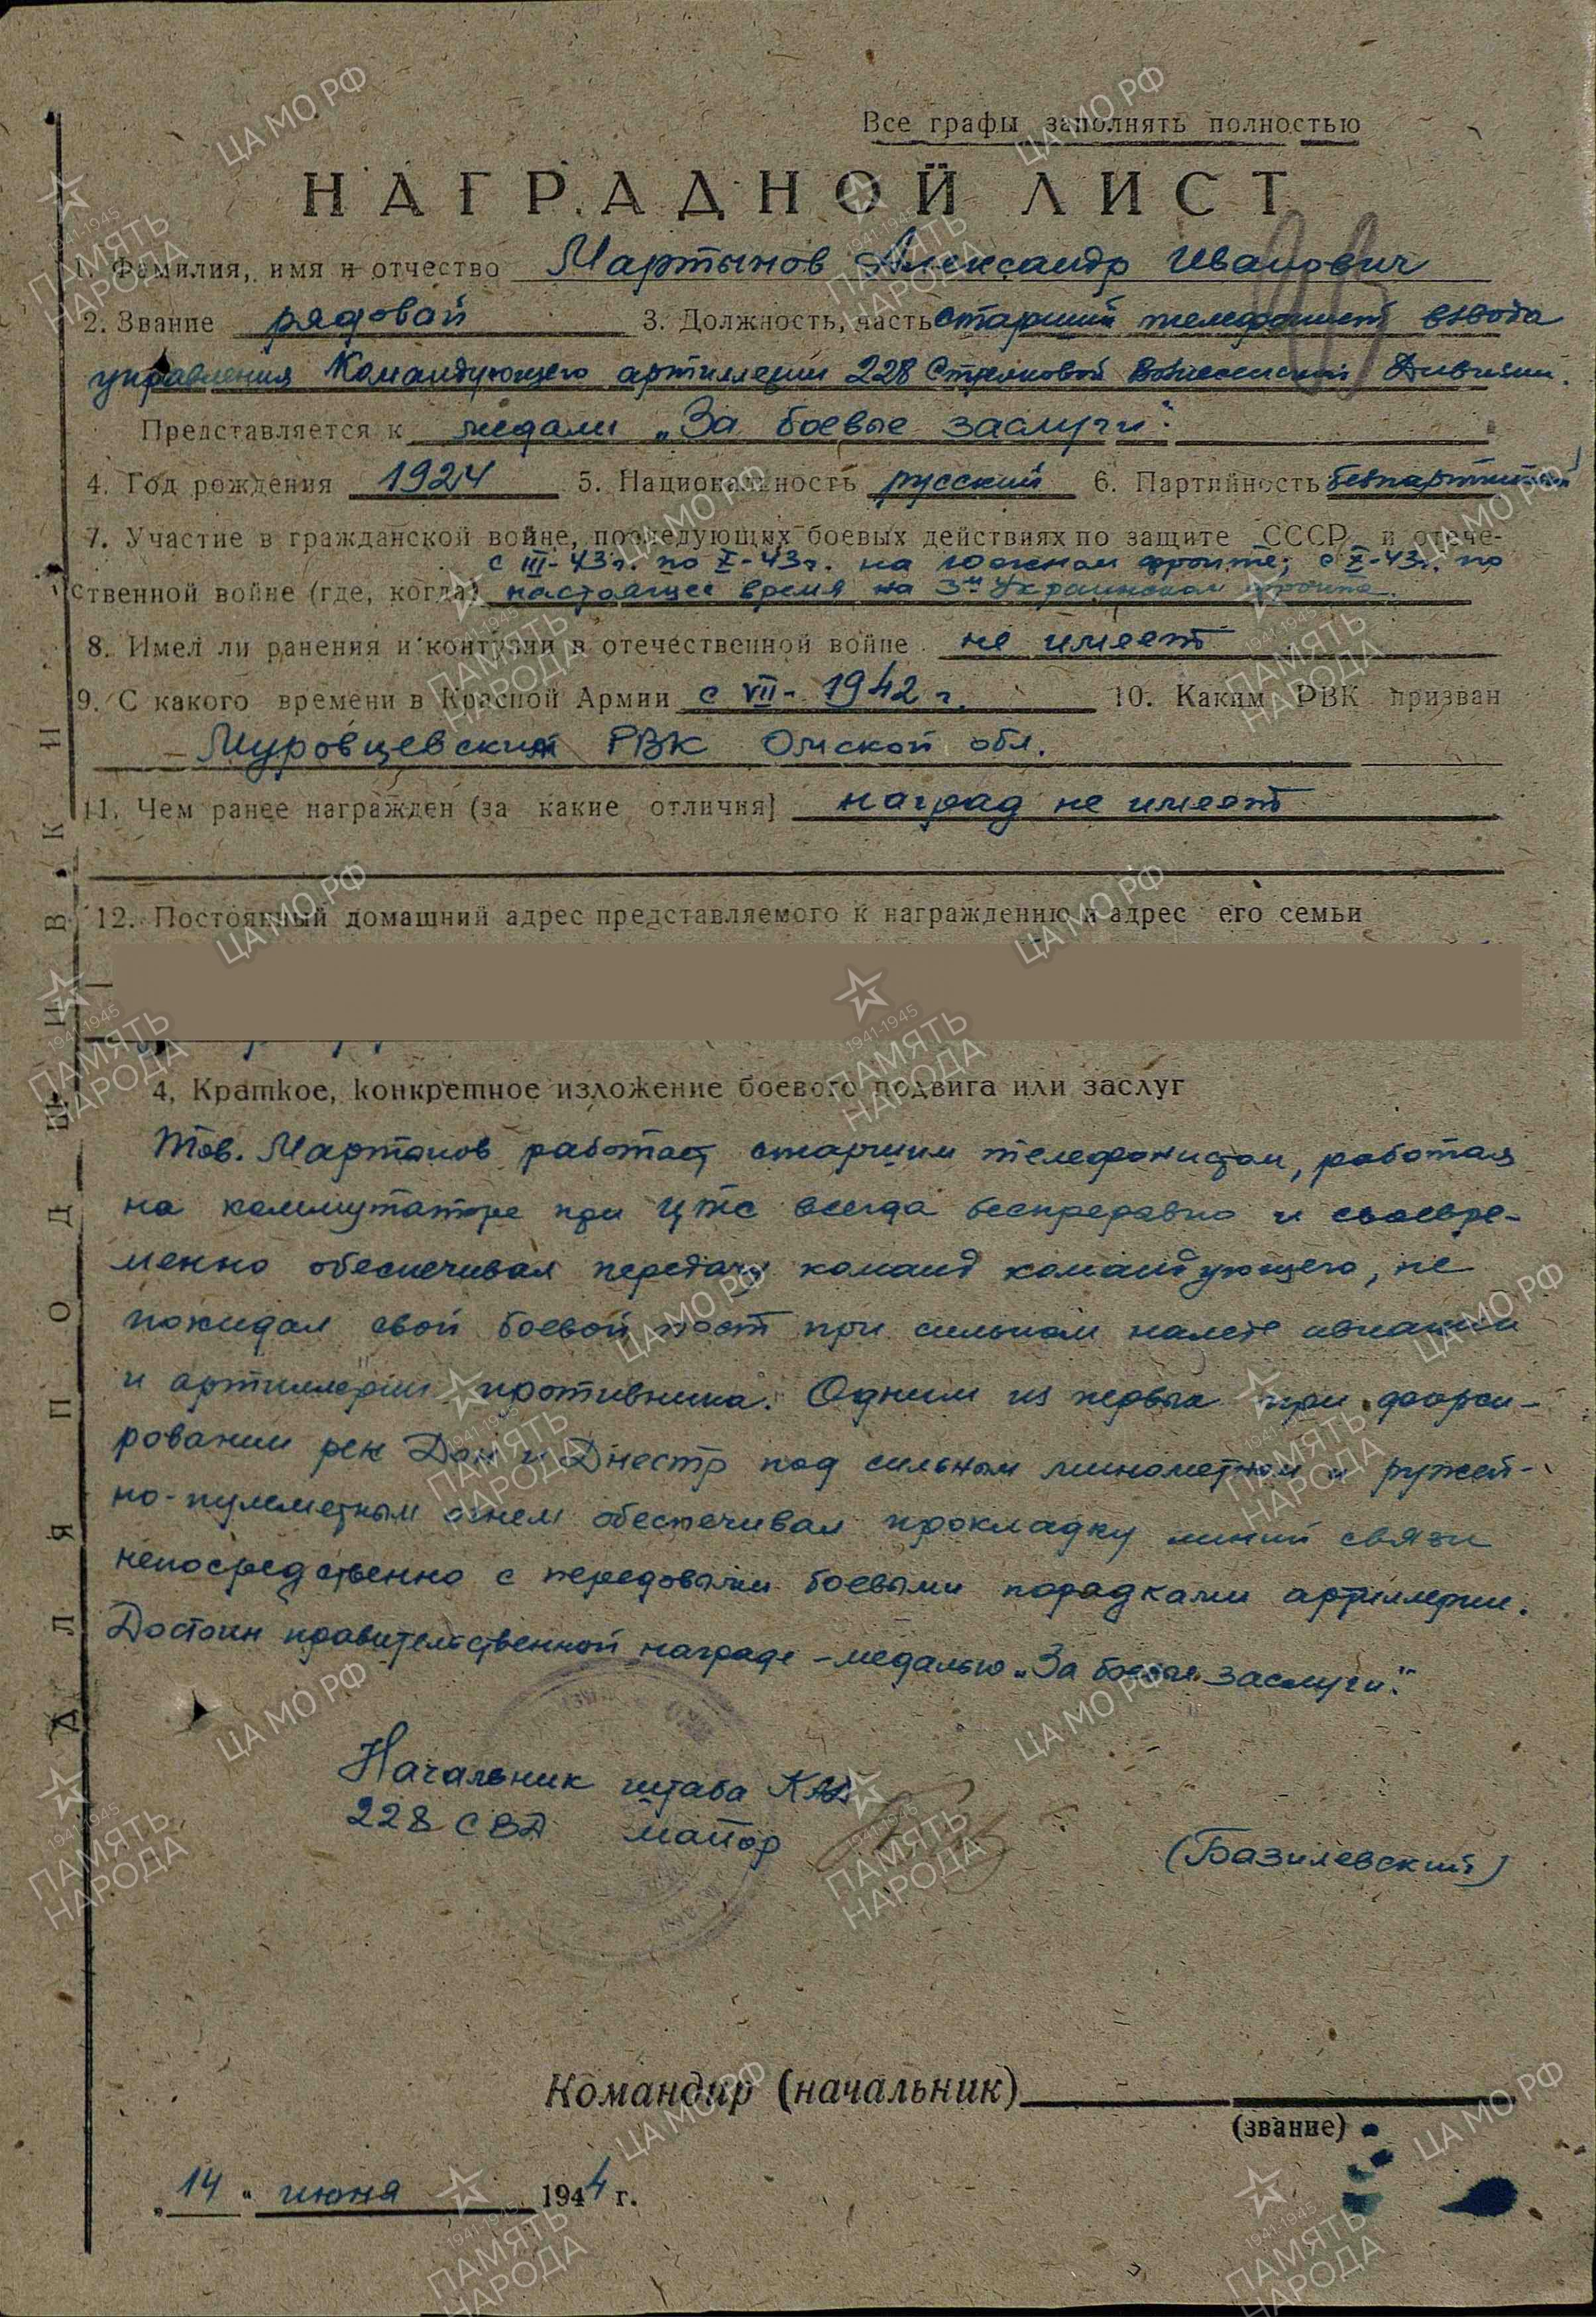 Все графы заполнять полностью
НАГРАДНОЙ ЛИСТ
1. Фамилия, имя и отчество Мартынов Александр Иванович
2. Звание рядовой 3. Должность, часть старший телефонист взвода
управления Командующего артиллерии 228 Стрелковой Вознесенской Дивизии.
Представляется к медали „За боевые заслуги".
4. Год рождения 1924 5. Национальность русский 6. Партийность безпартийный
7. Участие в гражданской войне, последующих боевых действиях по защите СССР и отече-
с III-43г. по X-43г. на Южном фронте; с X-43г. по
ственной войне (где, когда) настоящее время на 3м Украинском фронте.
8. Имел ли ранения и контузии в отечественной войне не имеет
9. С какого времени в Красной Армии с VII-1942 г. 10. Каким РВК призван
Муровцевский РВК Омской обл.
11. Чем ранее награжден (за какие отличия) наград не имеет
12. Постоянный домашний адрес представляемого к награждению и адрес его семьи
4, Краткое, конкретное изложение боевого подвига или заслуг
Тов. Мартынов работает старшим телефонистом, работая
на коммутаторе при ЦТС всегда беспреравно и своевре-
менно обеспечивал передачу команд командующего, не
покидал свой боевой пост при сильном налете авиации
и артиллерии противника. Одним из первых при форси-
ровании рек Дон и Днестр под сильным минометном и ружей-
но-пулеметным огнем обеспечивал прокладку линий связи
непосредственно с передовыми боевыми порадками артиллерии.
Достоин правительственной награде - медалью „За боевые заслуги".
Начальник штаба КАД
228 СВД майор
(Базилевский)
Командир (начальник)
(звание)
„14" июня 1944 г.
ДЛЯ ПОДШИВКИ
ЦА МО РФ
1941-1945
ПАМЯТЬ
НАРОДА